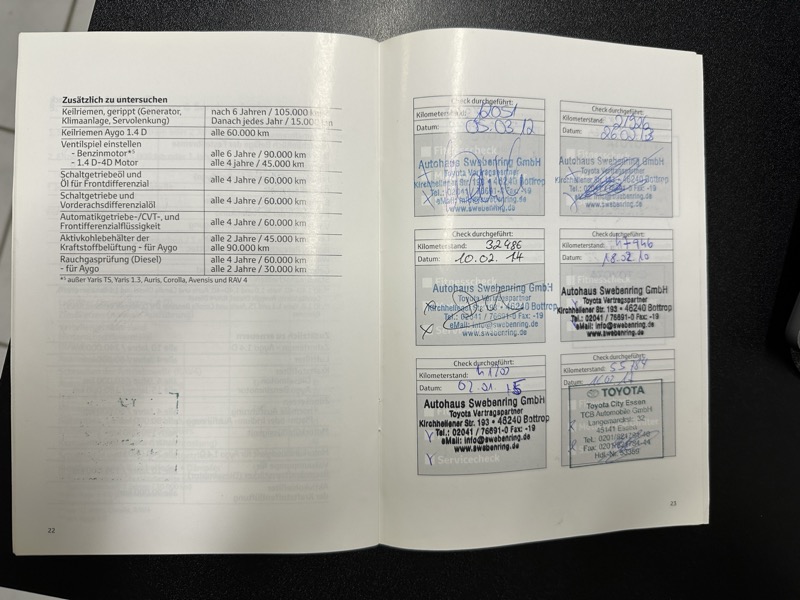 Zusätzlich zu untersuchen
Keilriemen, gerippt (Generator, nach 6 Jahren / 105.000 km
Klimaanlage, Servolenkung) Danach jedes Jahr / 15.000 km
Keilriemen Aygo 1.4 D alle 60.000 km
Ventilspiel einstellen
- Benzinmotor*⁾ alle 6 Jahre / 90.000 km
- 1.4 D-4D Motor alle 4 Jahre / 45.000 km
Schaltgetriebeöl und
Öl für Frontdifferenzial alle 4 Jahre / 60.000 km
Schaltgetriebe und
Vorderachsdifferenzialöl alle 4 Jahre / 60.000 km
Automatikgetriebe-/CVT-, und
Frontifferenzialflüssigkeit alle 4 Jahre / 60.000 km
Aktivkohlebehälter der alle 2 Jahre / 45.000 km
Kraftstoffbelüftung - für Aygo alle 90.000 km
Rauchgasprüfung (Diesel) alle 4 Jahre / 60.000 km
- für Aygo alle 2 Jahre / 30.000 km
*⁾ außer Yaris TS, Yaris 1.3, Auris, Corolla, Avensis und RAV 4
22
Check durchgeführt:
Kilometerstand:
Datum: 05.03.12
Autohaus Swebenring GmbH
Toyota Vertragspartner
Kirchhellener Str. 193 • 46240 Bottrop
Tel.: 02041 / 76891-0 Fax: -19
eMail: info@swebenring.de
www.swebenring.de
Check durchgeführt:
Kilometerstand:
Datum: 26.02.13
Autohaus Swebenring GmbH
Toyota Vertragspartner
Kirchhellener Str. 193 • 46240 Bottrop
Tel.: 02041 / 76891-0 Fax: -19
eMail: info@swebenring.de
www.swebenring.de
Check durchgeführt:
Kilometerstand: 32486
Datum: 10.02.14
Autohaus Swebenring GmbH
Toyota Vertragspartner
Kirchhellener Str. 193 • 46240 Bottrop
Tel.: 02041 / 76891-0 Fax: -19
eMail: info@swebenring.de
www.swebenring.de
Check durchgeführt:
Kilometerstand: 47946
Datum:
Autohaus Swebenring GmbH
Toyota Vertragspartner
Kirchhellener Str. 193 • 46240 Bottrop
Tel.: 02041 / 76891-0 Fax: -19
eMail: info@swebenring.de
www.swebenring.de
Check durchgeführt:
Kilometerstand:
Datum:
Autohaus Swebenring GmbH
Toyota Vertragspartner
Kirchhellener Str. 193 • 46240 Bottrop
Tel.: 02041 / 76891-0 Fax: -19
eMail: info@swebenring.de
www.swebenring.de
Servicecheck
Check durchgeführt:
Kilometerstand:
Datum:
TOYOTA
Toyota City Essen
TCB Automobile GmbH
Langemarckstr. 32
45141 Essen
23